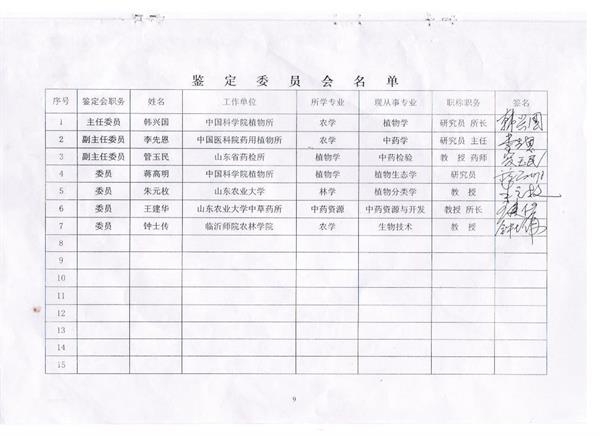 鉴定委员会名单
序号 鉴定会职务 姓名 工作单位 所学专业 现从事专业 职称职务 签名
1 主任委员 韩兴国 中国科学院植物所 农学 植物学 研究员 所长 韩兴国
2 副主任委员 李先恩 中国医科院药用植物所 农学 中药学 研究员 主任
3 副主任委员 管玉民 山东省药检所 植物学 中药检验 教 授 药师
4 委员 蒋高明 中国科学院植物所 植物学 植物生态学 研究员
5 委员 朱元枚 山东农业大学 林学 植物分类学 教 授
6 委员 王建华 山东农业大学中草药所 中药资源 中药资源与开发 教授 所长
7 委员 钟士传 临沂师院农林学院 农学 生物技术 教 授
8
9
10
11
12
13
14
15
9